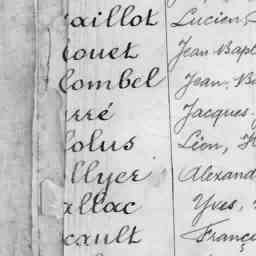 aillot Lucien
ouet Jean Bapt
ombel Jean, Ba
rré Jacques.
olus Léon, H
llyer Alexand
allac Yves,
cault Franç